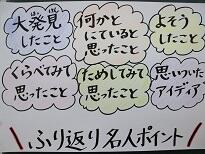 大発見
したこと
何かと
にていると
思ったこと
よそう
したこと
くらべてみて
思ったこと
ためしてみて
思ったこと
思いついた
アイディア
ふり返り名人ポイント